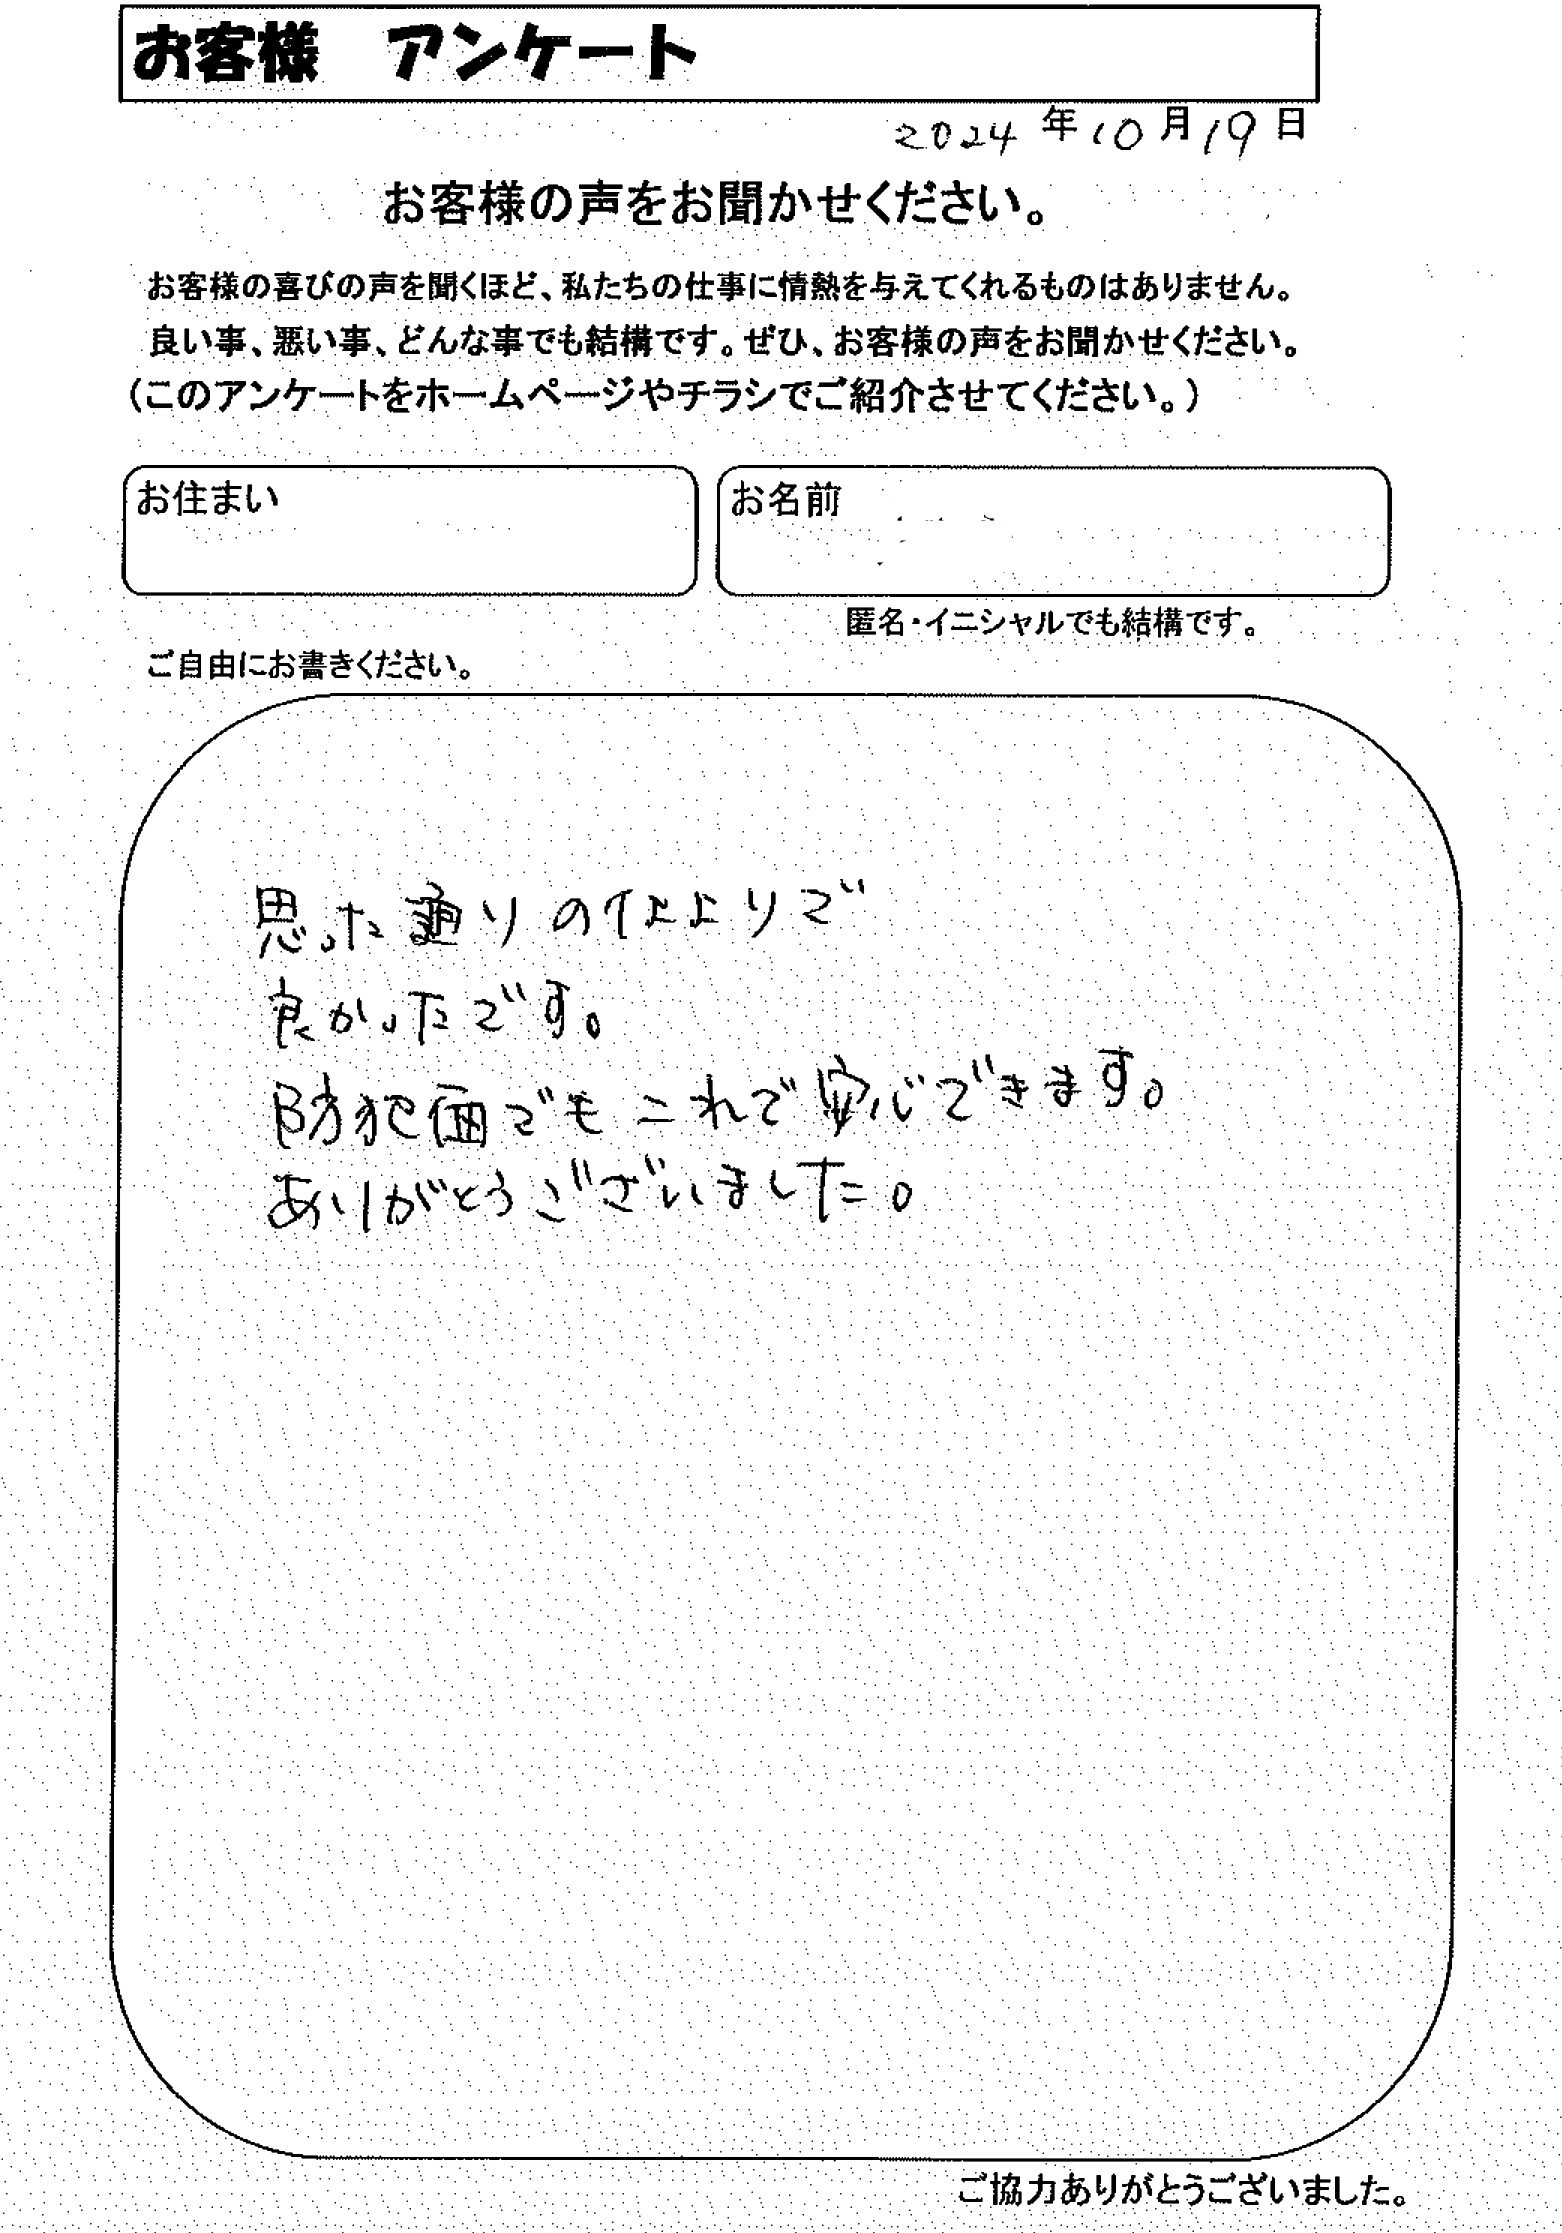 お客様 アンケート
2024年10月19日
お客様の声をお聞かせください。
お客様の喜びの声を聞くほど、私たちの仕事に情熱を与えてくれるものはありません。
良い事、悪い事、どんな事でも結構です。ぜひ、お客様の声をお聞かせください。
(このアンケートをホームページやチラシでご紹介させてください。)
お住まい
お名前
匿名・イニシャルでも結構です。
ご自由にお書きください。
思った通りの仕上りで
良かったです。
防犯面でもこれで安心できます。
ありがとうございました。
ご協力ありがとうございました。